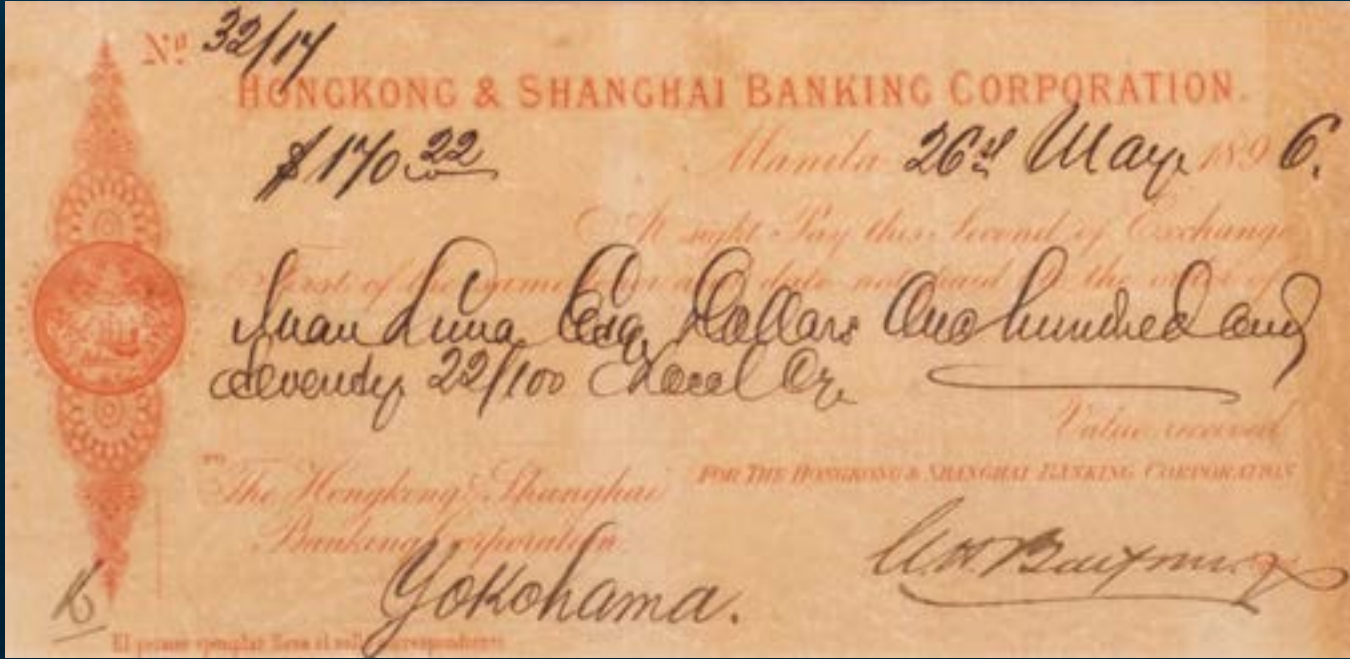 Nº 32/17
HONGKONG & SHANGHAI BANKING CORPORATION.
$170.22 Manila 26th May 1896.
At sight Pay this Second of Exchange
First of the same and date not paid to the order of
Juan Luna Esq. Dollars One hundred and
Seventy 22/100 Local Cy.
Value received
TO
The Hongkong & Shanghai FOR THE HONGKONG & SHANGHAI BANKING CORPORATION
Banking Corporation
Yokohama.
El primer ejemplar lleva el sello correspondiente